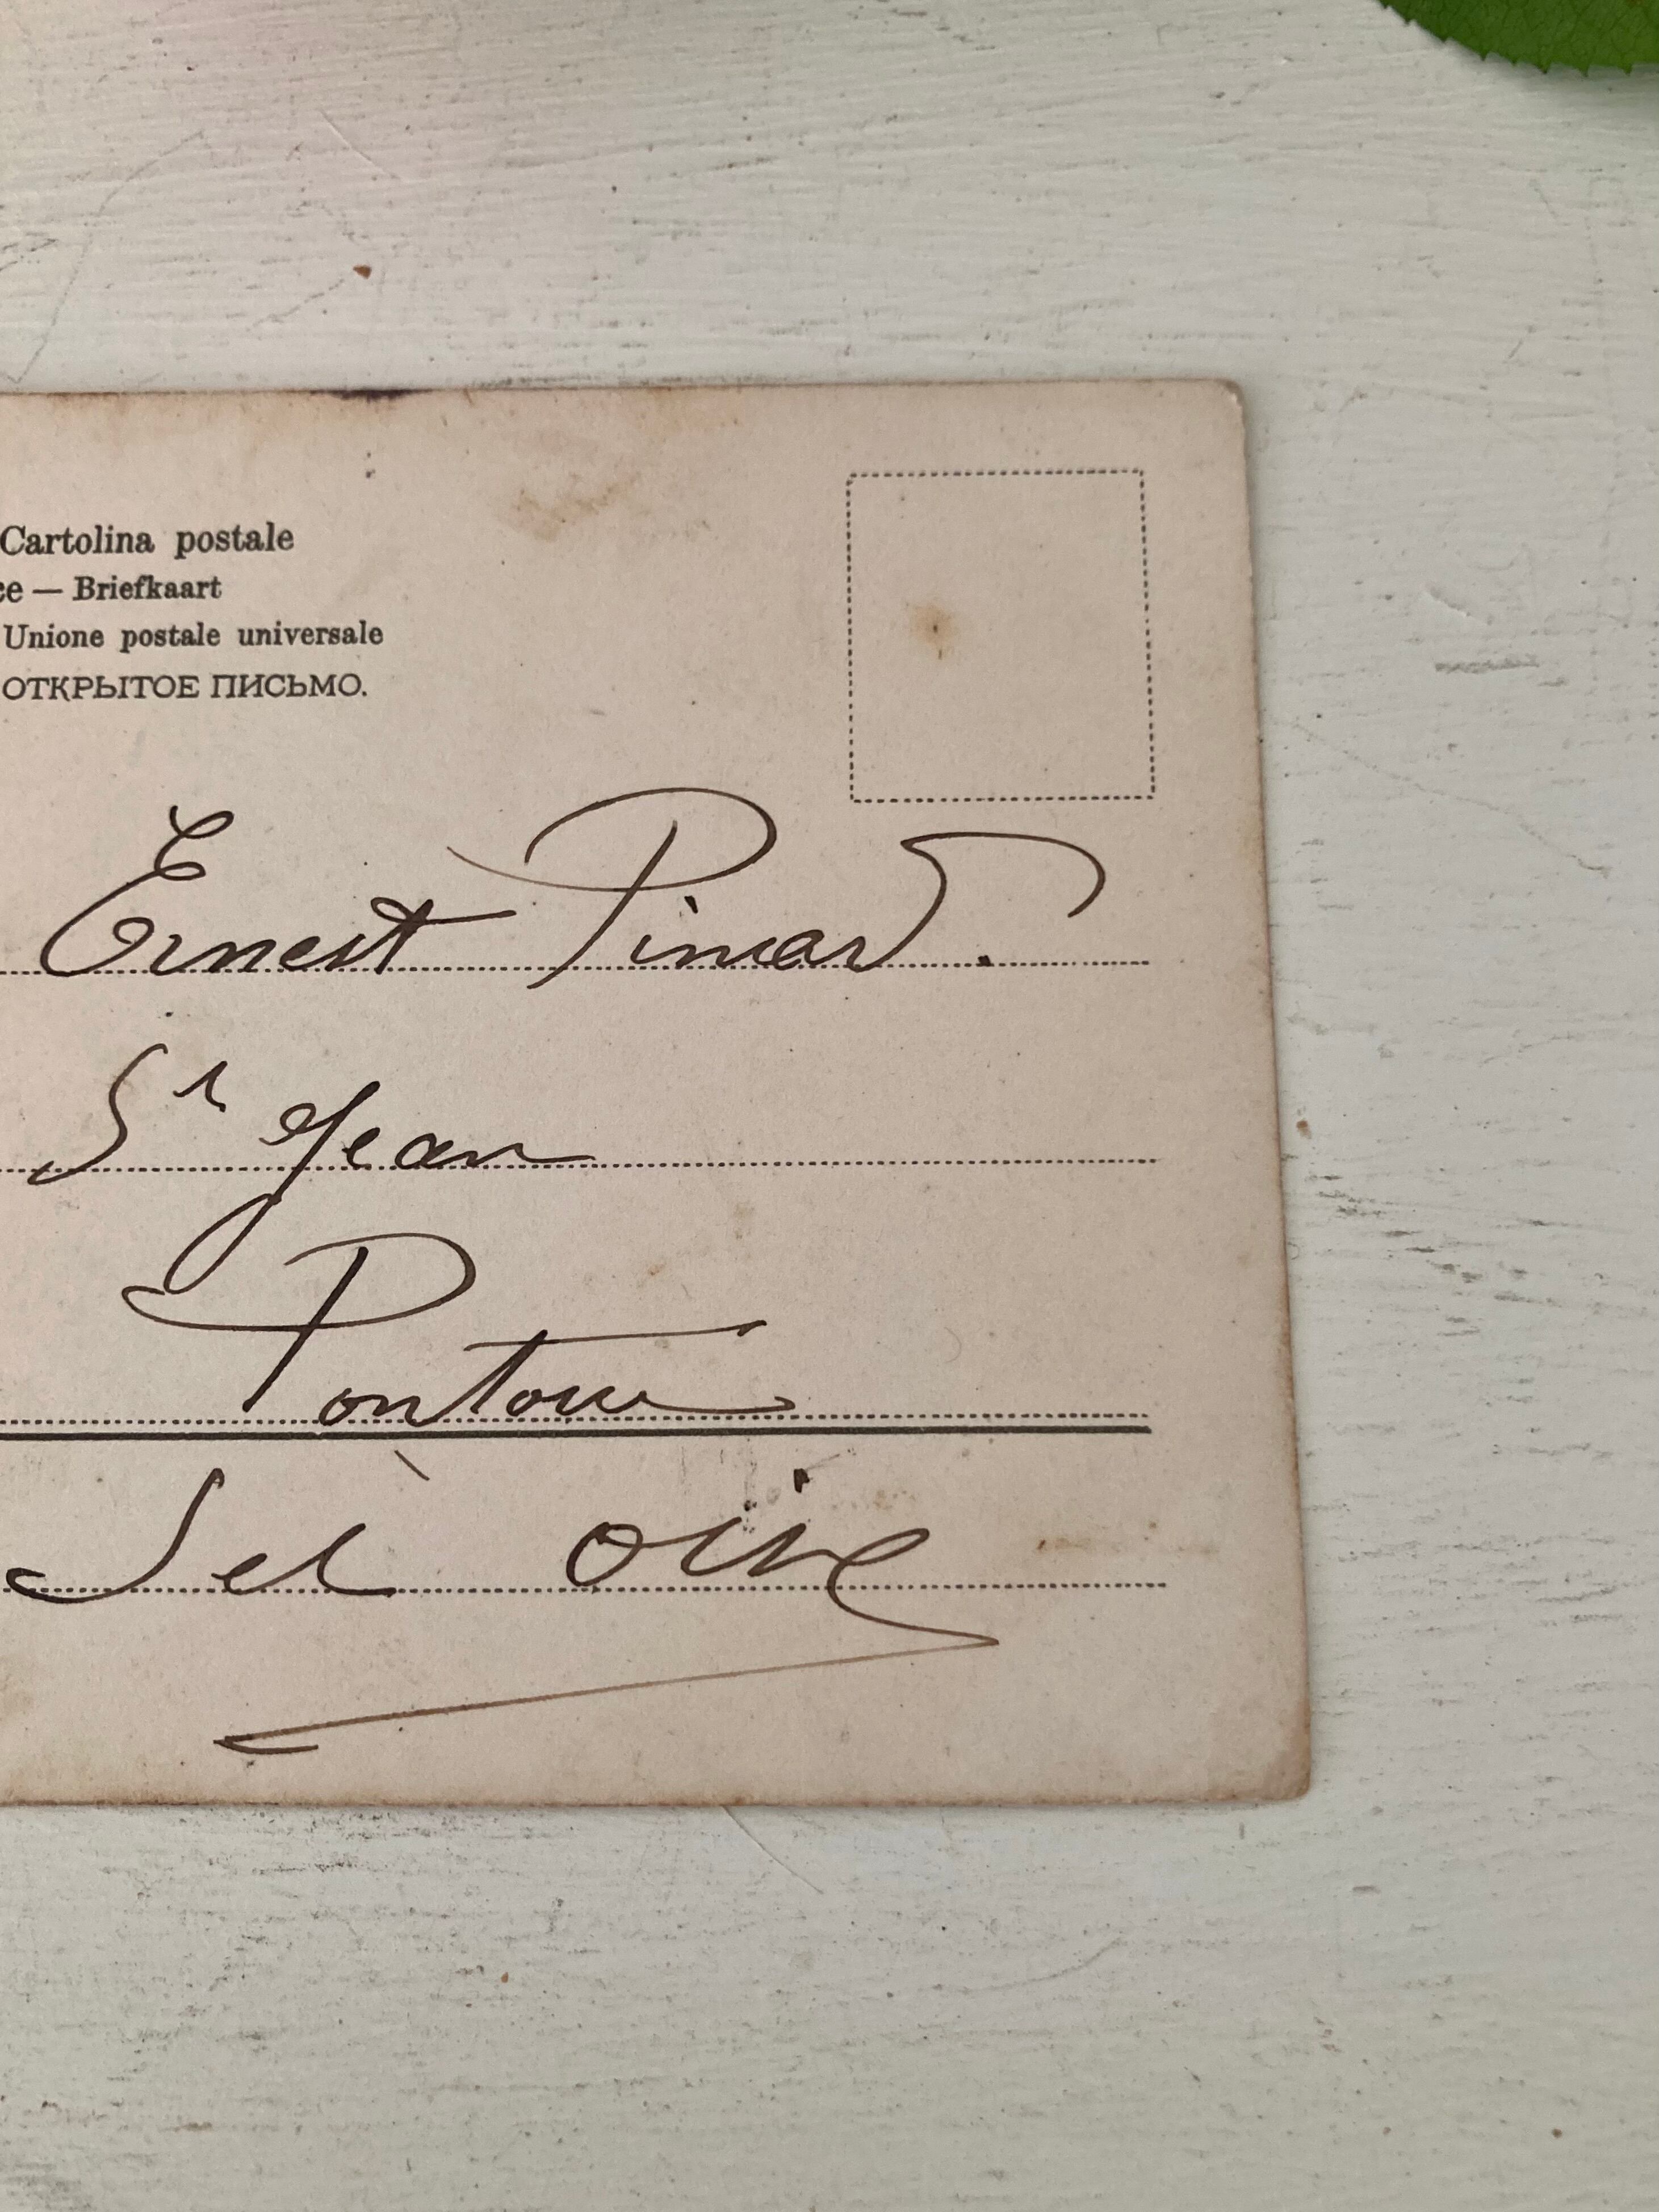 Cartolina postale
ce — Briefkaart
Unione postale universale
ОТКРЫТОЕ ПИСЬМО.
Ernest Pinard.
St Jean
Pontoise
Set oise